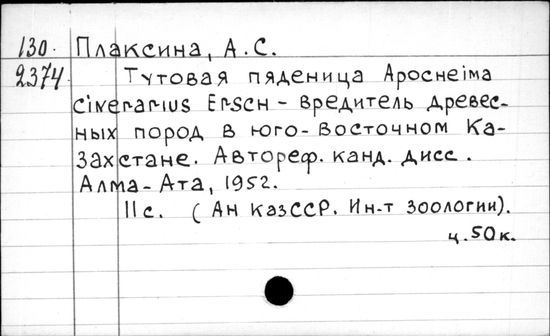 130. Плаксина, А.С.
2374 Тутовая пяденица Apocheima
cinerarius Ersch - вредитель древес-
ных пород в юго-восточном Ка-
захстане. Автореф. канд. дисс.
Алма-Ата, 1952.
11с. (Ан КазССР. Ин-т зоологии).
ц.50к.